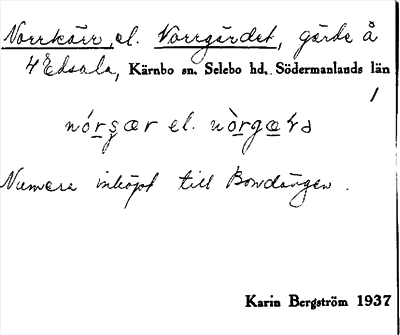 Norrkärr, el. Norrgärdet, gärde å
4 Edsala, Kärnbo sn. Selebo hd. Södermanlands län
1
nórşær el. nòrgæ
Numera inköpt till Bondängen.
Karin Bergström 1937